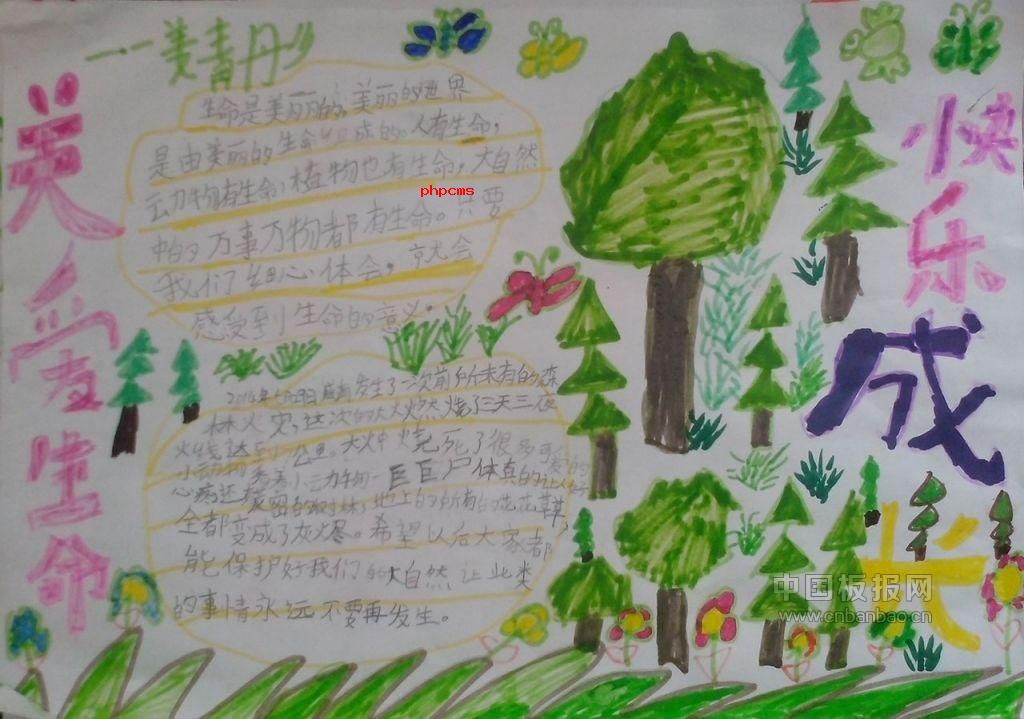 关爱生命
快乐成长
生命是美丽的,美丽的世界
是由美丽的生命组成的。人有生命,
动物有生命,植物也有生命,大自然
phpcms
中的万事万物都有生命。只要
我们细心体会,就会
感受到生命的意义。
发生了一次前所未有的森
林火灾,这次的大火燃烧了三天三夜
火线达到 公里。大火中烧死了很多可爱的
小动物 看着小动物一 尸体真的让人好
心痛还有 的树林,地上的所有的 花草
全都变成了灰烬。希望以后大家都
能保护好我们的大自然 让此类
的事情永远不要再发生。
中国板报网
www.cnbanbao.cn